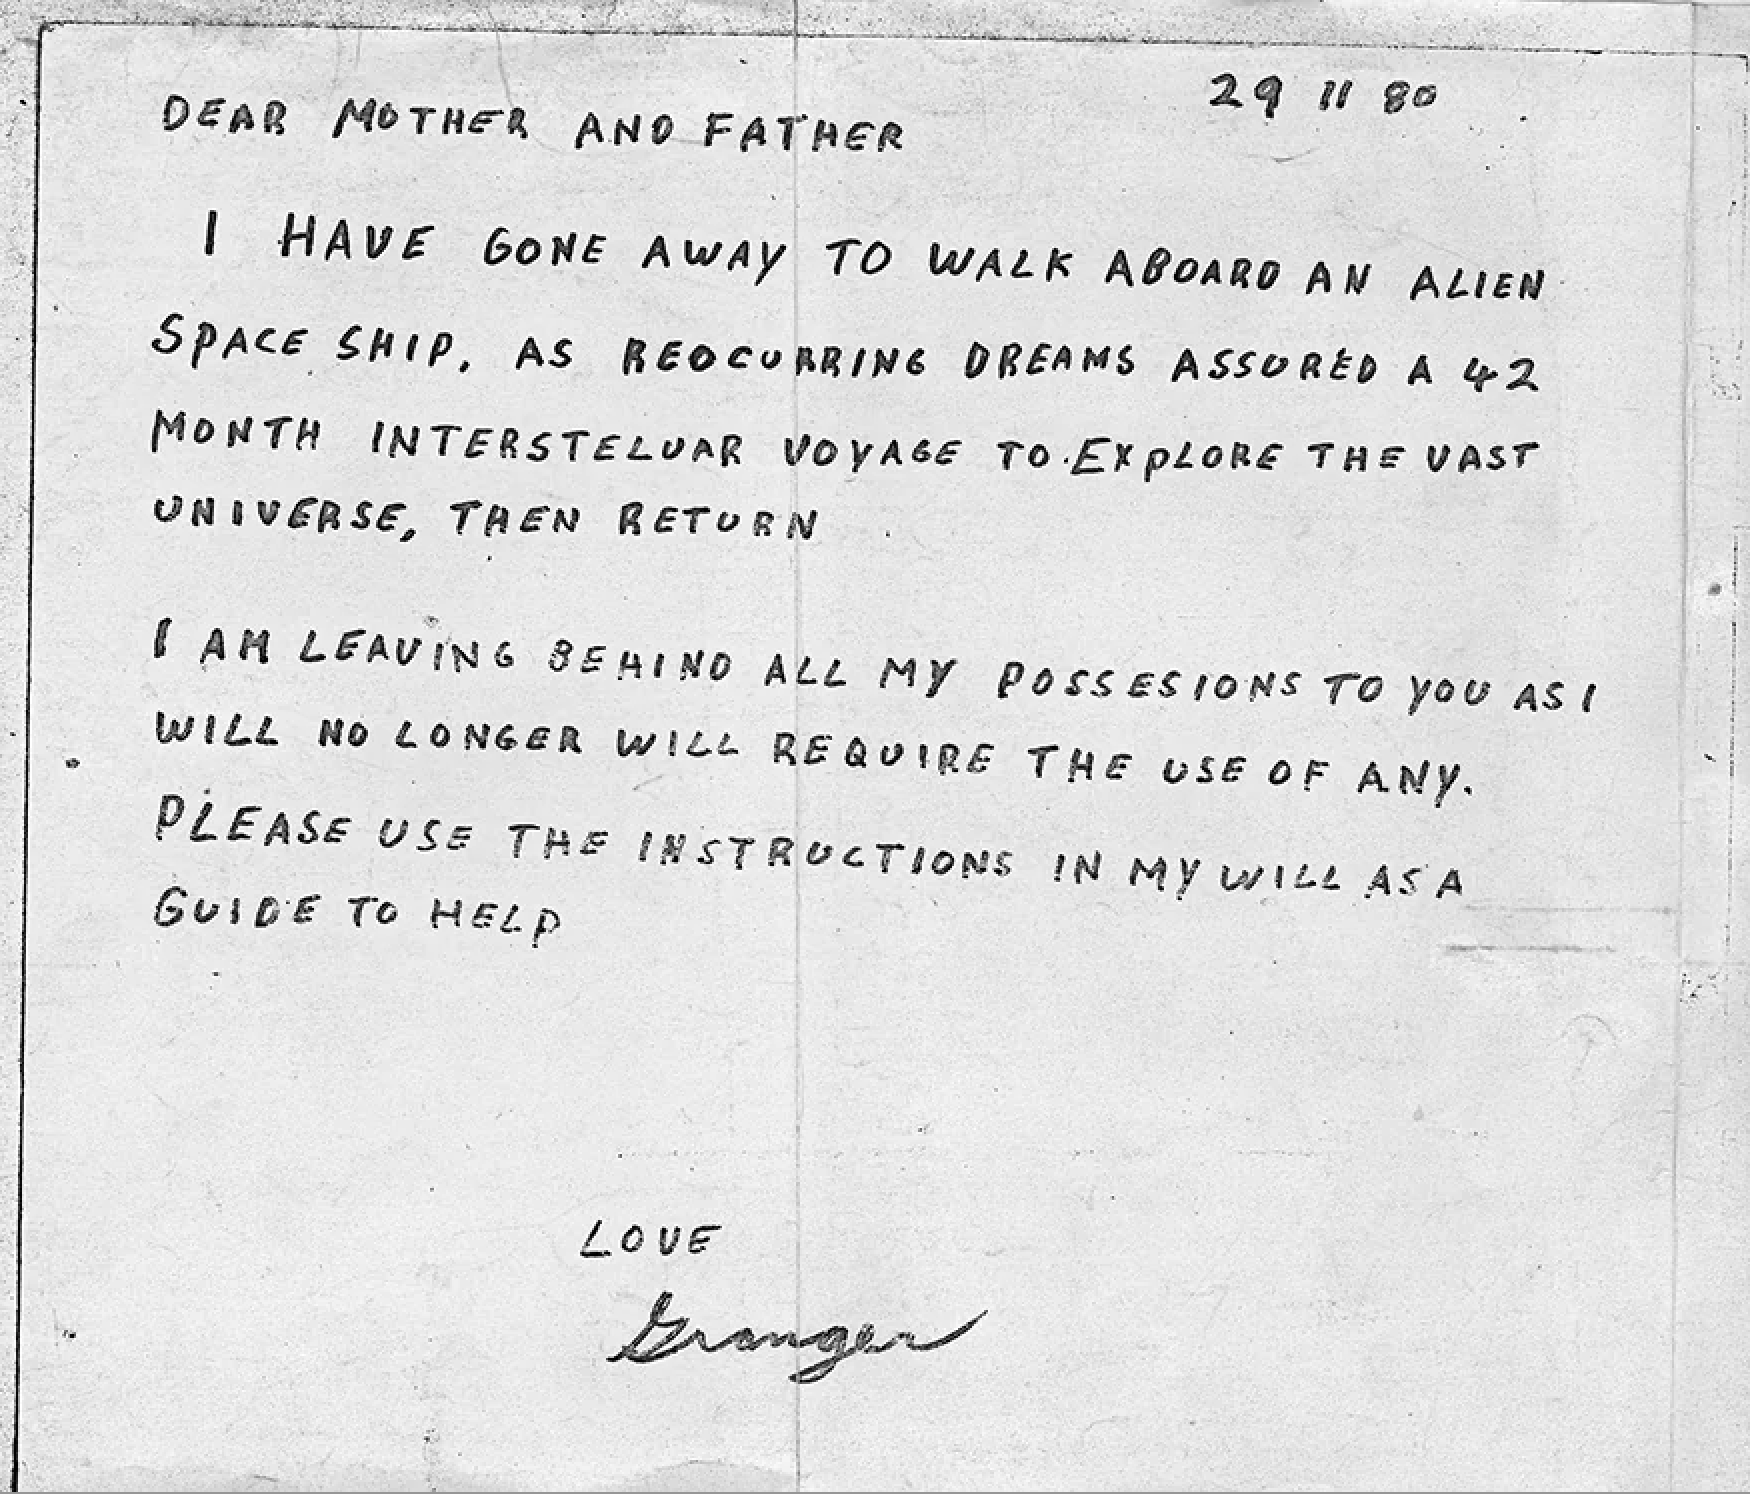 29 11 80
DEAR MOTHER AND FATHER
I HAVE GONE AWAY TO WALK ABOARD AN ALIEN
SPACE SHIP, AS REOCURRING DREAMS ASSURED A 42
MONTH INTERSTELLAR VOYAGE TO EXPLORE THE VAST
UNIVERSE, THEN RETURN
I AM LEAVING BEHIND ALL MY POSSESIONS TO YOU AS I
WILL NO LONGER WILL REQUIRE THE USE OF ANY.
PLEASE USE THE INSTRUCTIONS IN MY WILL AS A
GUIDE TO HELP
LOVE
Granger